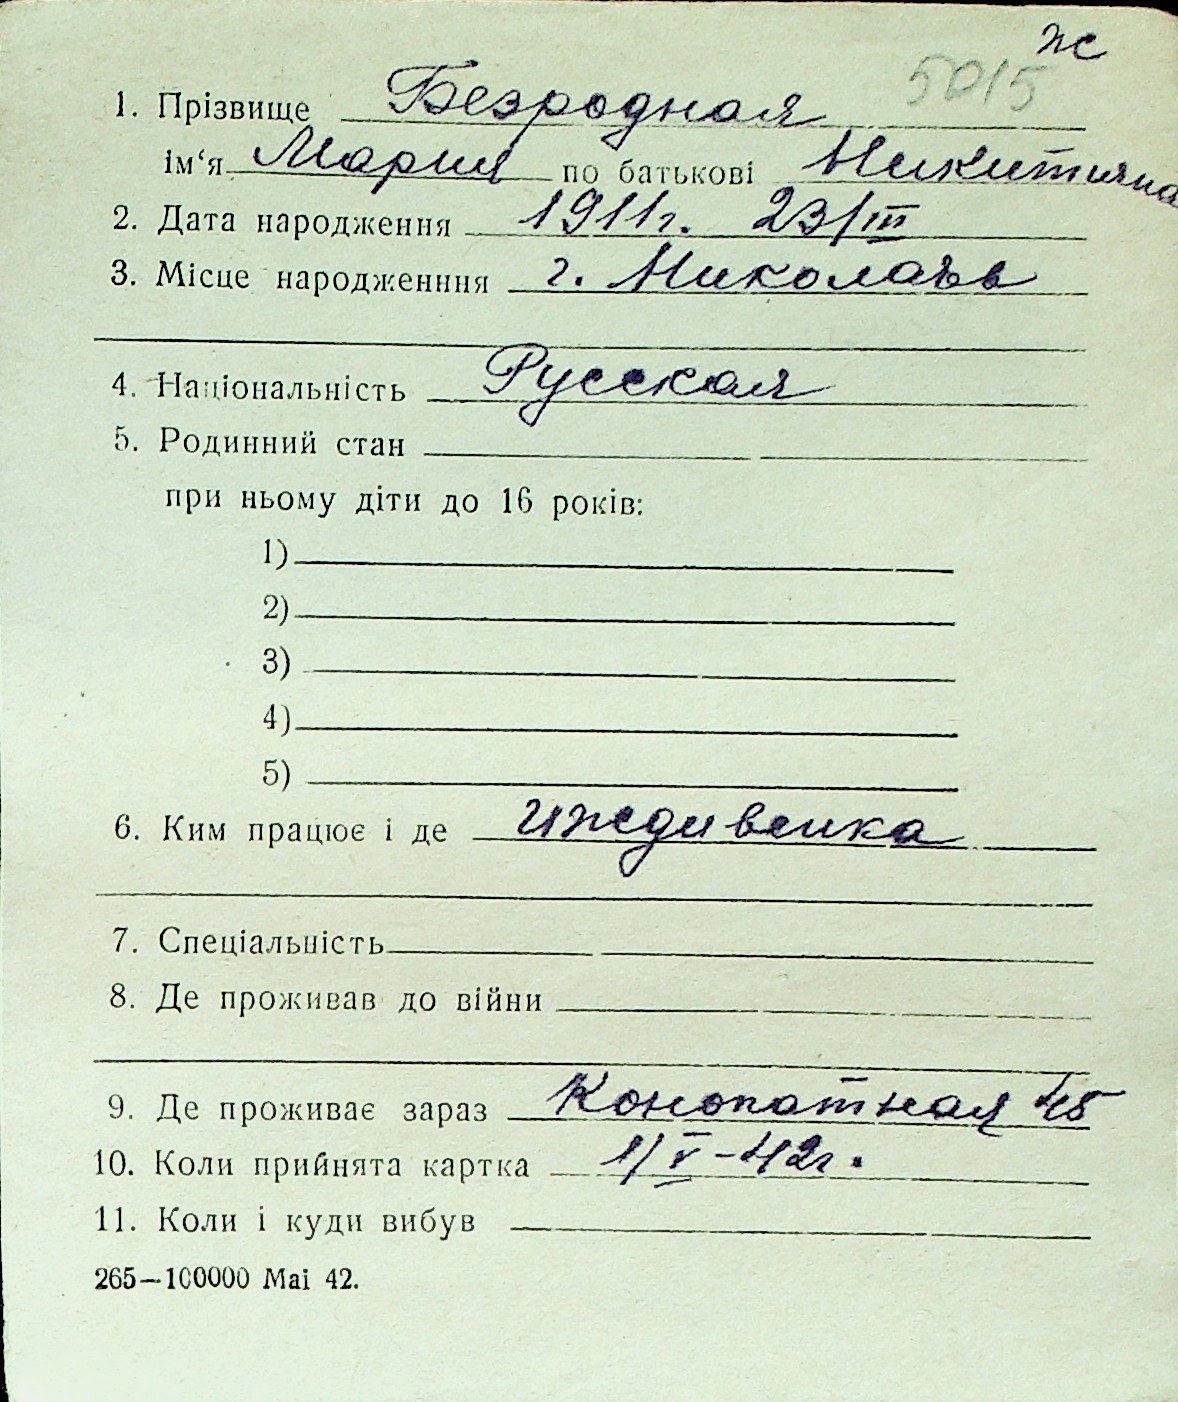 ж
5015
1. Прізвище Безродная
ім‘я Мария по батькові Никитична
2. Дата народження 1911г. 23/III
3. Місце народженння г. Николаев
4. Національність Русская
5. Родинний стан
при ньому діти до 16 років:
1)
2)
3)
4)
5)
6. Ким працює і де иждивенка
7. Спеціальність
8. Де проживав до війни
9. Де проживає зараз Конопатная 45
10. Коли прийнята картка 1/V-42г.
11. Коли і куди вибув
265—100000 Mai 42.